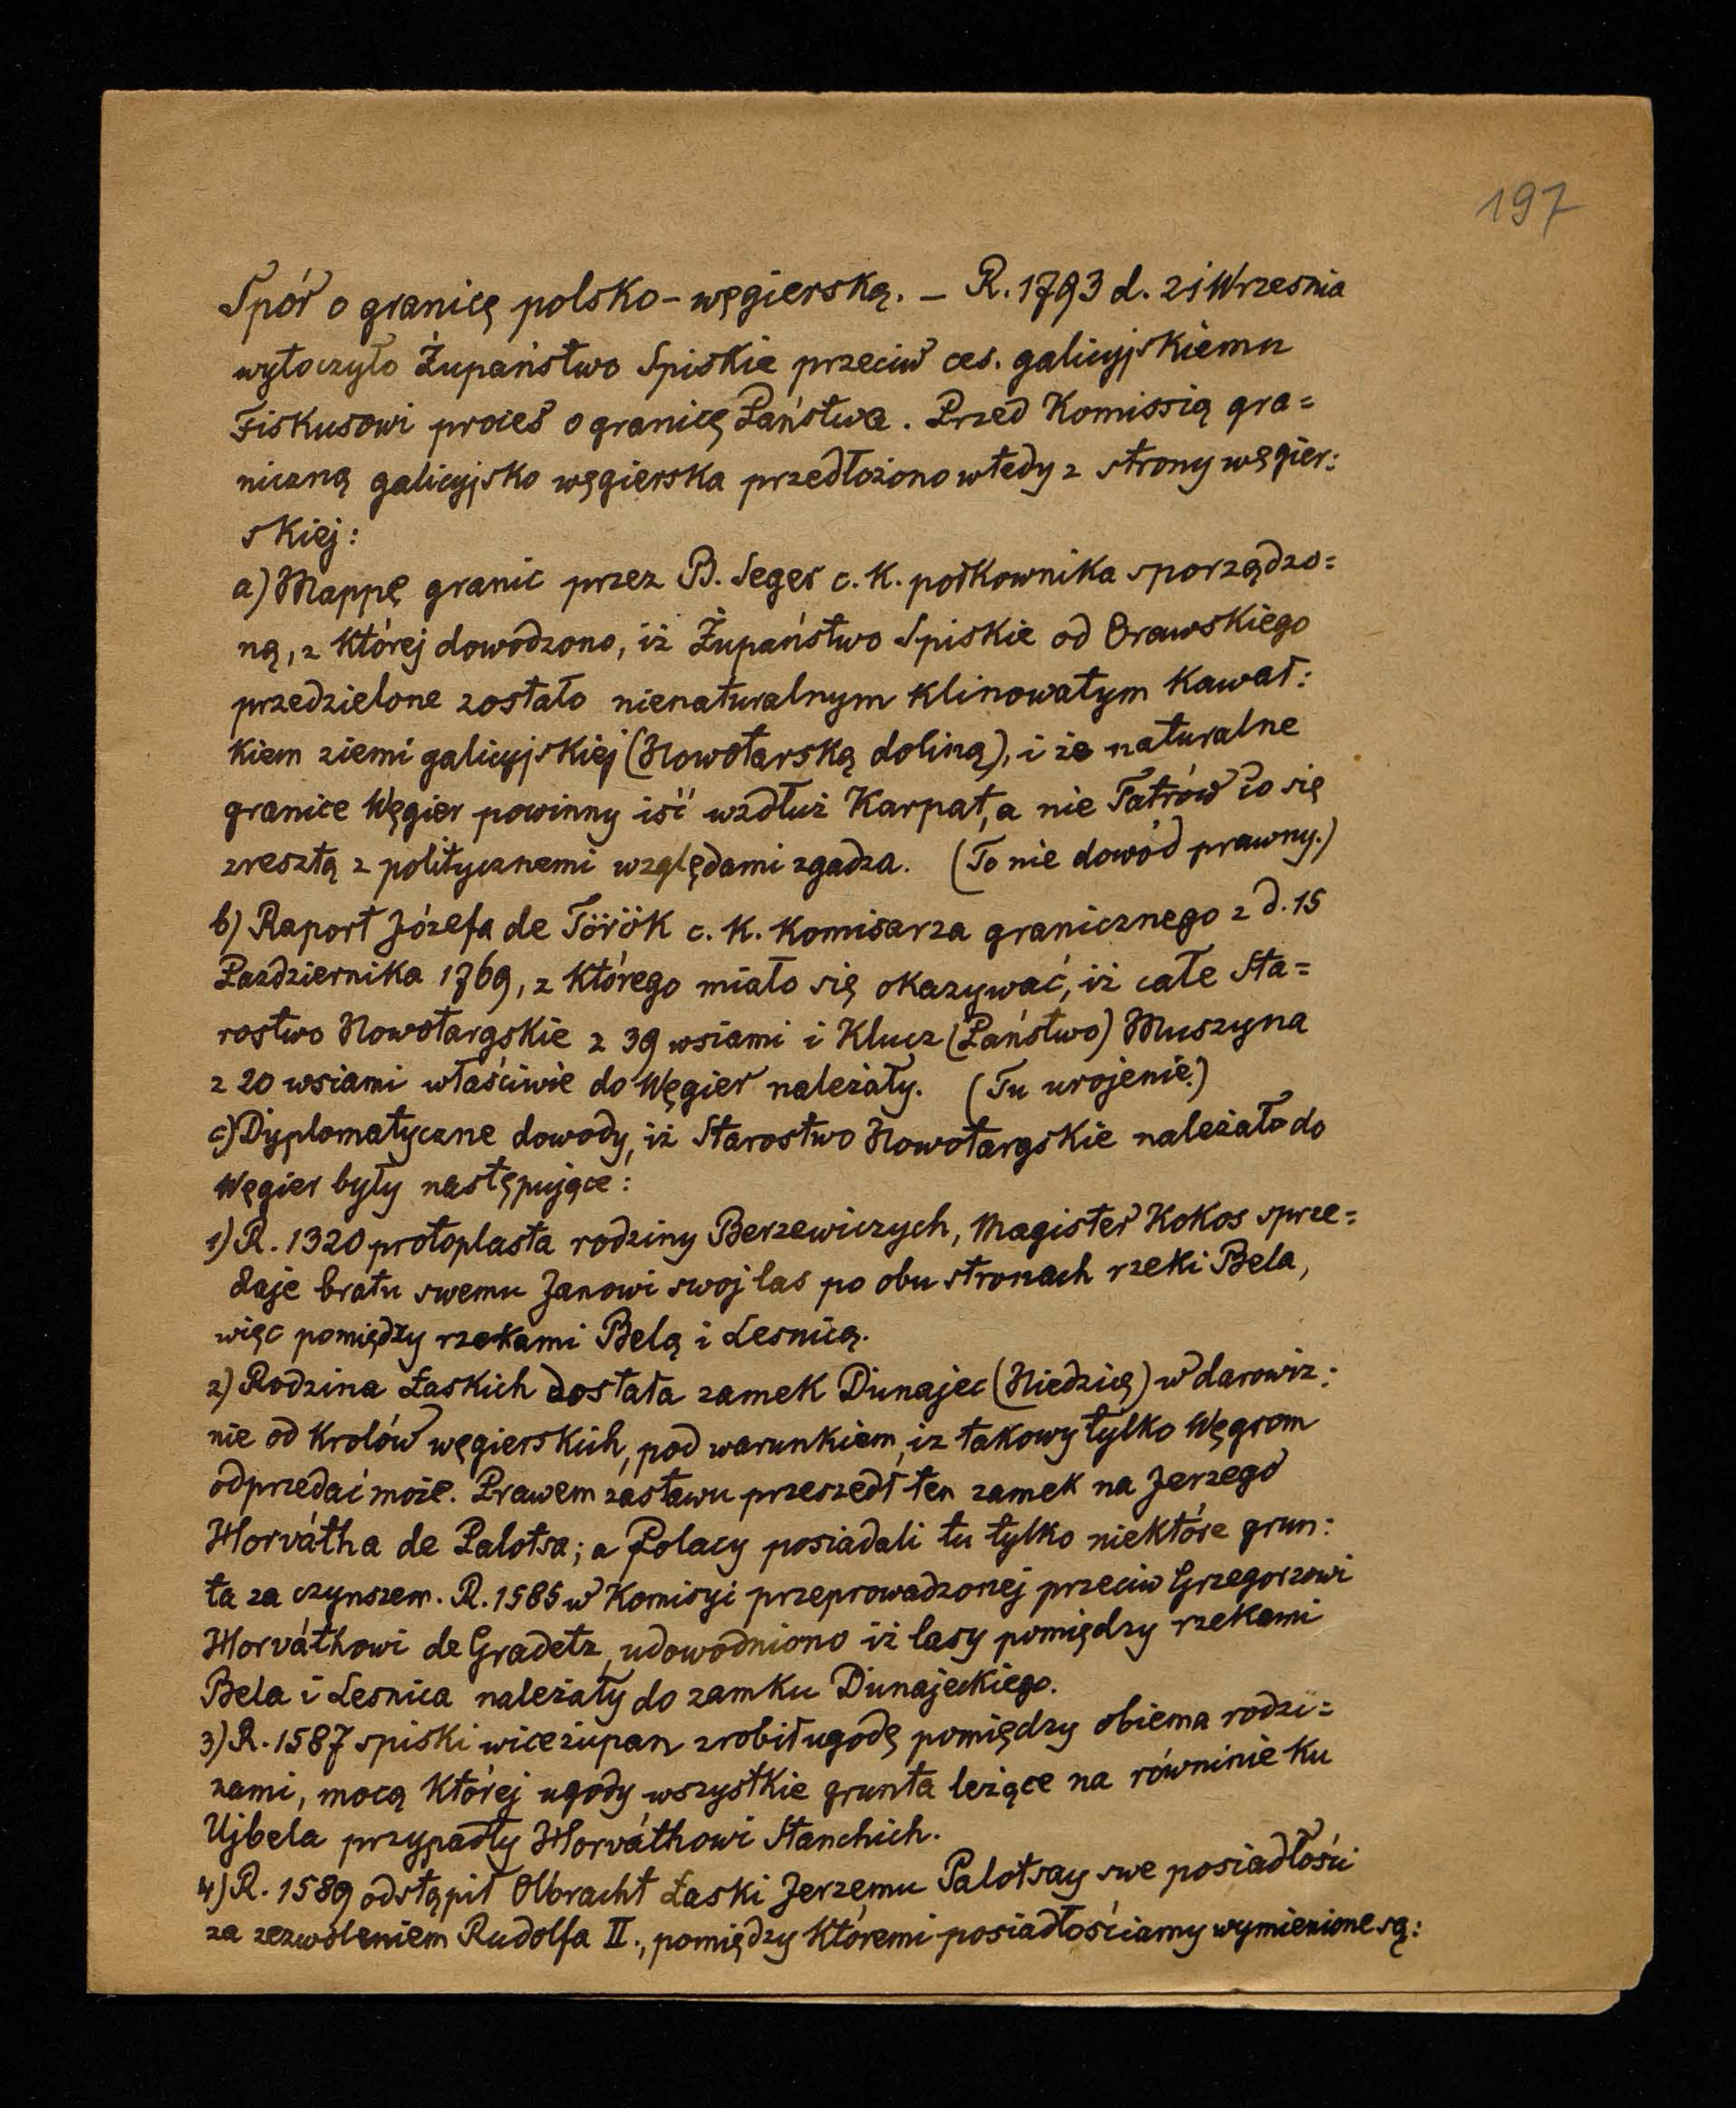 197
Spór o granicę polsko-węgierską. – R. 1793 d. 21 Wrzesnia
wytoczyło Żupaństwo Spiskie przeciw ces. galicyjskiemu
Fiskusowi proces o granicę Państwa. Przed Komissią gra=
niczną galicyjsko węgierska przedłożono wtedy z strony węgier:
skiej:
a) Mappę granic przez B. Seger c. K. połkownika sporządzo=
ną, z której dowodzono, iż Żupaństwo Spiskie od Orawskiego
przedzielone zostało nienaturalnym klinowatym kawał:
kiem ziemi galicyjskiej (Nowotarską doliną), i że naturalne
granice Węgier powinny iść wzdłuż Karpat, a nie Tatrów co się
zresztą z politycznemi względami zgadza. (To nie dowód prawny.)
b) Raport Józefa de Török c. K. Komisarza granicznego z d. 15
Pazdziernika 1769, z którego miało się okazywać, iż całe Sta=
rostwo Nowotargskie z 39 wsiami i Klucz (Państwo) Muszyna
z 20 wsiami właściwie do Węgier należały. (Tu urojenie.)
c) Dyplomatyczne dowody, iż Starostwo Nowotargskie należało do
Węgier były następujące:
1) R. 1320 protoplasta rodziny Berzewiczych, Magister Kokos sprze=
daje bratu swemu Janowi swoj las po obu stronach rzeki Bela,
więc pomiędzy rzekami Belą i Lesnicą.
2) Rodzina Łaskich dostała zamek Dunajec (Niedzicę) w darowiz:
nie od Krolów węgierskich, pod warunkiem, iz takowy tylko Węgrom
odprzedać może. Prawem zastawu przeszedł ten zamek na Jerzego
Horvátha de Palotsa; a Polacy posiadali tu tylko niektóre grun:
ta za czynszem. R. 1585 w Komisyi przeprowadzonej przeciw Grzegorzowi
Horváthowi de Gradetz, udowodniono iż lasy pomiędzy rzekami
Bela i Lesnica należały do zamku Dunajeckiego.
3) R. 1587 spiski wiceżupan zrobił ugodę pomiędzy obiema rodzi=
nami, mocą której ugody wszystkie grunta leżące na równinie ku
Ujbela przypadły Horváthowi Stanchich.
4) R. 1589 odstąpił Olbracht Łaski Jerzemu Palotsay swe posiadłości
za zezwoleniem Rudolfa II., pomiędzy któremi posiadłościamy wymienione są: